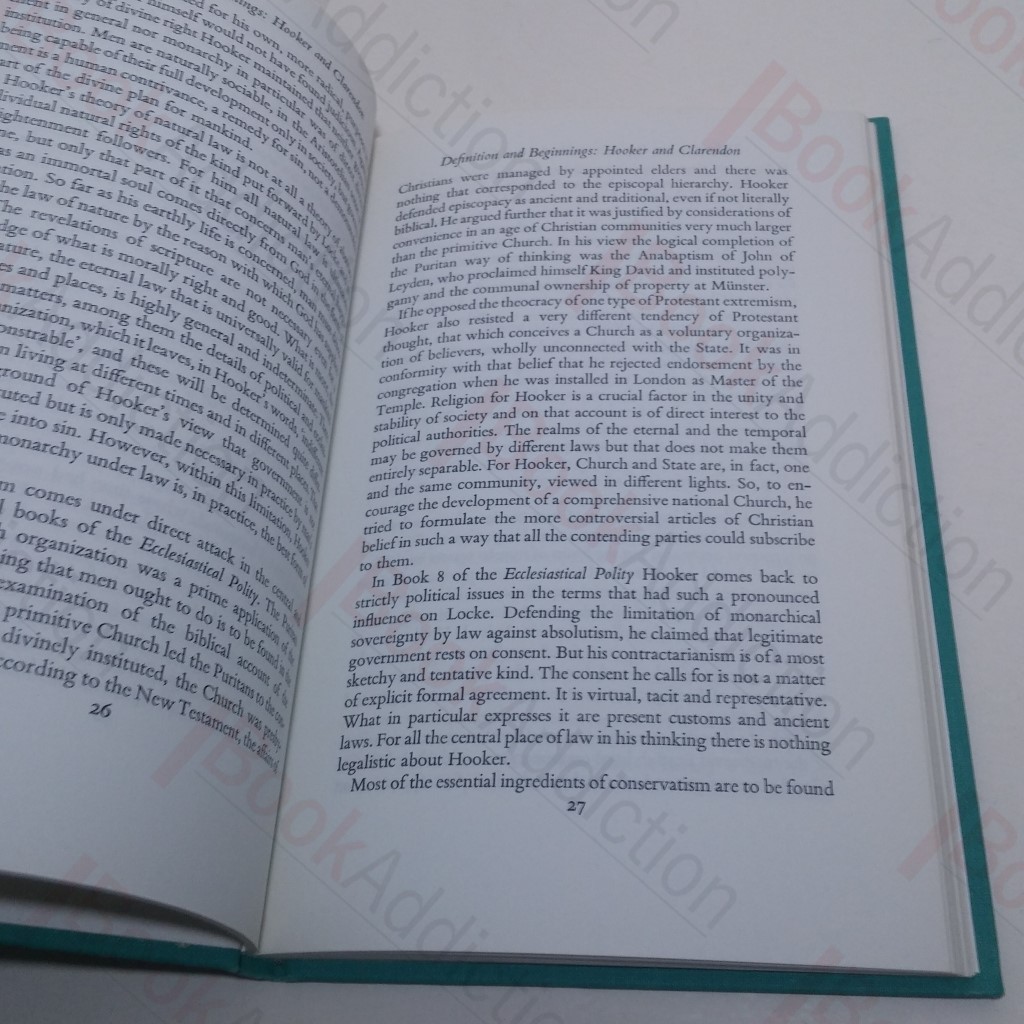 ment in general nor monarchy in particular was of
institution. Men are naturally sociable, in the
being capable of their full development only in society, but
ment is a human contrivance, a remedy for sin, not a
art of the divine plan for mankind.
Hooker's theory of natural law is not at all a theory of
dividual natural rights of the kind put forward by
ightenment followers. For him all natural law is
ne, but only that part of it that concerns man's
as an immortal soul comes directly from God in the
tion. So far as his earthly life is concerned, man
he law of nature by the reason with which God has
The revelations of scripture are not necessary
dge of what is morally right and good. What is
ature, the eternal law that is universally valid for
es and places, is highly general and indeterminate.
matters, among them the details of political and
nization, which it leaves, in Hooker's words,
onstrable', and these will be determined quite
n living at different times and in different places.
round of Hooker's view that government is
uted but is only made necessary in practice by
e into sin. However, within this limitation, Hooker
monarchy under law is, in practice, the best form of
m comes under direct attack in the central and
l books of the Ecclesiastical Polity. The Puritan
h organization was a prime application of the
ing that men ought to do is to be found in the
examination of the biblical account of the
primitive Church led the Puritans to the con-
divinely instituted, the Church was
ccording to the New Testament, the affairs of
26
Definition and Beginnings: Hooker and Clarendon
Christians were managed by appointed elders and there was
nothing that corresponded to the episcopal hierarchy. Hooker
defended episcopacy as ancient and traditional, even if not literally
biblical, He argued further that it was justified by considerations of
convenience in an age of Christian communities very much larger
than the primitive Church. In his view the logical completion of
the Puritan way of thinking was the Anabaptism of John of
Leyden, who proclaimed himself King David and instituted poly-
gamy and the communal ownership of property at Münster.
If he opposed the theocracy of one type of Protestant extremism,
Hooker also resisted a very different tendency of Protestant
thought, that which conceives a Church as a voluntary organiza-
tion of believers, wholly unconnected with the State. It was in
conformity with that belief that he rejected endorsement by the
congregation when he was installed in London as Master of the
Temple. Religion for Hooker is a crucial factor in the unity and
stability of society and on that account is of direct interest to the
political authorities. The realms of the eternal and the temporal
may be governed by different laws but that does not make them
entirely separable. For Hooker, Church and State are, in fact, one
and the same community, viewed in different lights. So, to en-
courage the development of a comprehensive national Church, he
tried to formulate the more controversial articles of Christian
belief in such a way that all the contending parties could subscribe
to them.
In Book 8 of the Ecclesiastical Polity Hooker comes back to
strictly political issues in the terms that had such a pronounced
influence on Locke. Defending the limitation of monarchical
sovereignty by law against absolutism, he claimed that legitimate
government rests on consent. But his contractarianism is of a most
sketchy and tentative kind. The consent he calls for is not a matter
of explicit formal agreement. It is virtual, tacit and representative.
What in particular expresses it are present customs and ancient
laws. For all the central place of law in his thinking there is nothing
legalistic about Hooker.
Most of the essential ingredients of conservatism are to be found
27